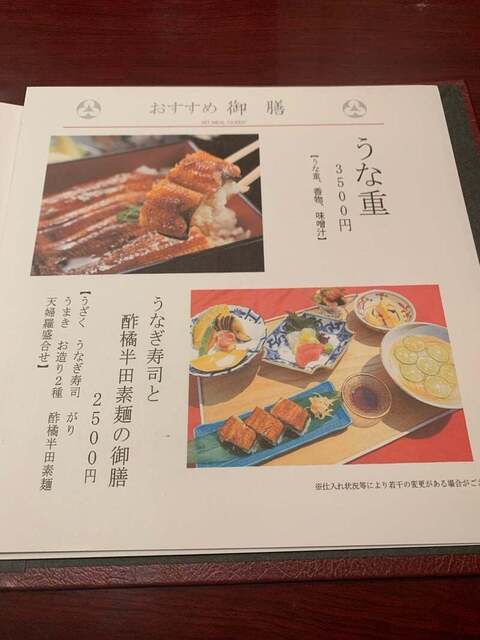 おすすめ 御 膳
うな重
3500円
【うな重、香物、味噌汁】
うなぎ寿司と
酢橘半田素麺の御膳
2500円
【うざく うなぎ寿司 がり
うまき お造り2種 酢橘半田素麺
天婦羅盛合せ】
※仕入れ状況等により若干の変更がある場合がござ